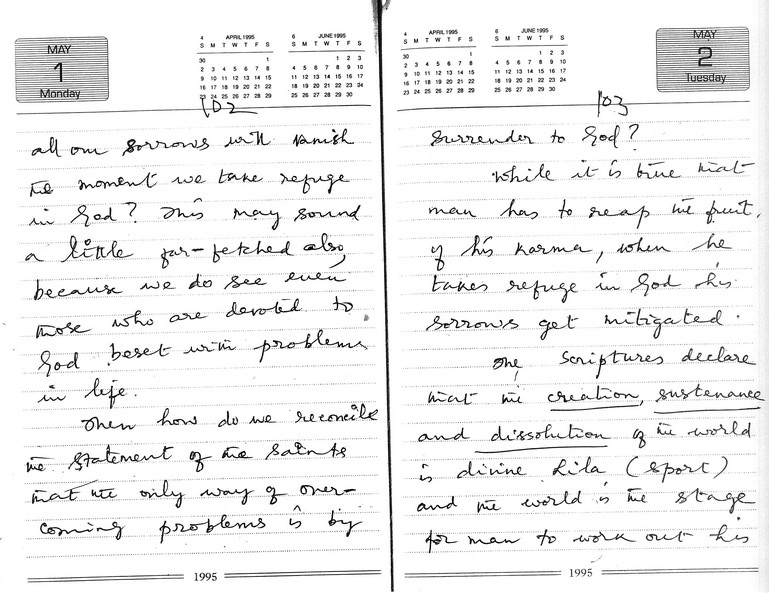 MAY
1
Monday
4 APRIL 1995
S M T W T F S
30 1
2 3 4 5 6 7 8
9 10 11 12 13 14 15
16 17 18 19 20 21 22
23 24 25 26 27 28 29
6 JUNE 1995
S M T W T F S
1 2 3
4 5 6 7 8 9 10
11 12 13 14 15 16 17
18 19 20 21 22 23 24
25 26 27 28 29 30
102
all our sorrows will vanish
the moment we take refuge
in God? This may sound
a little far-fetched also,
because we do see even
those who are devoted to
God beset with problems
in life.
Then how do we reconcile
the statement of the saints
that the only way of over-
coming problems is by
1995
4 APRIL 1995
S M T W T F S
30 1
2 3 4 5 6 7 8
9 10 11 12 13 14 15
16 17 18 19 20 21 22
23 24 25 26 27 28 29
6 JUNE 1995
S M T W T F S
1 2 3
4 5 6 7 8 9 10
11 12 13 14 15 16 17
18 19 20 21 22 23 24
25 26 27 28 29 30
MAY
2
Tuesday
103
surrender to God?
While it is true that
man has to reap the fruit,
of his karma, when he
takes refuge in God his
sorrows get mitigated.
The scriptures declare
that the creation, sustenance
and dissolution of the world
is divine Lila (sport)
and the world is the stage
for man to work out his
1995